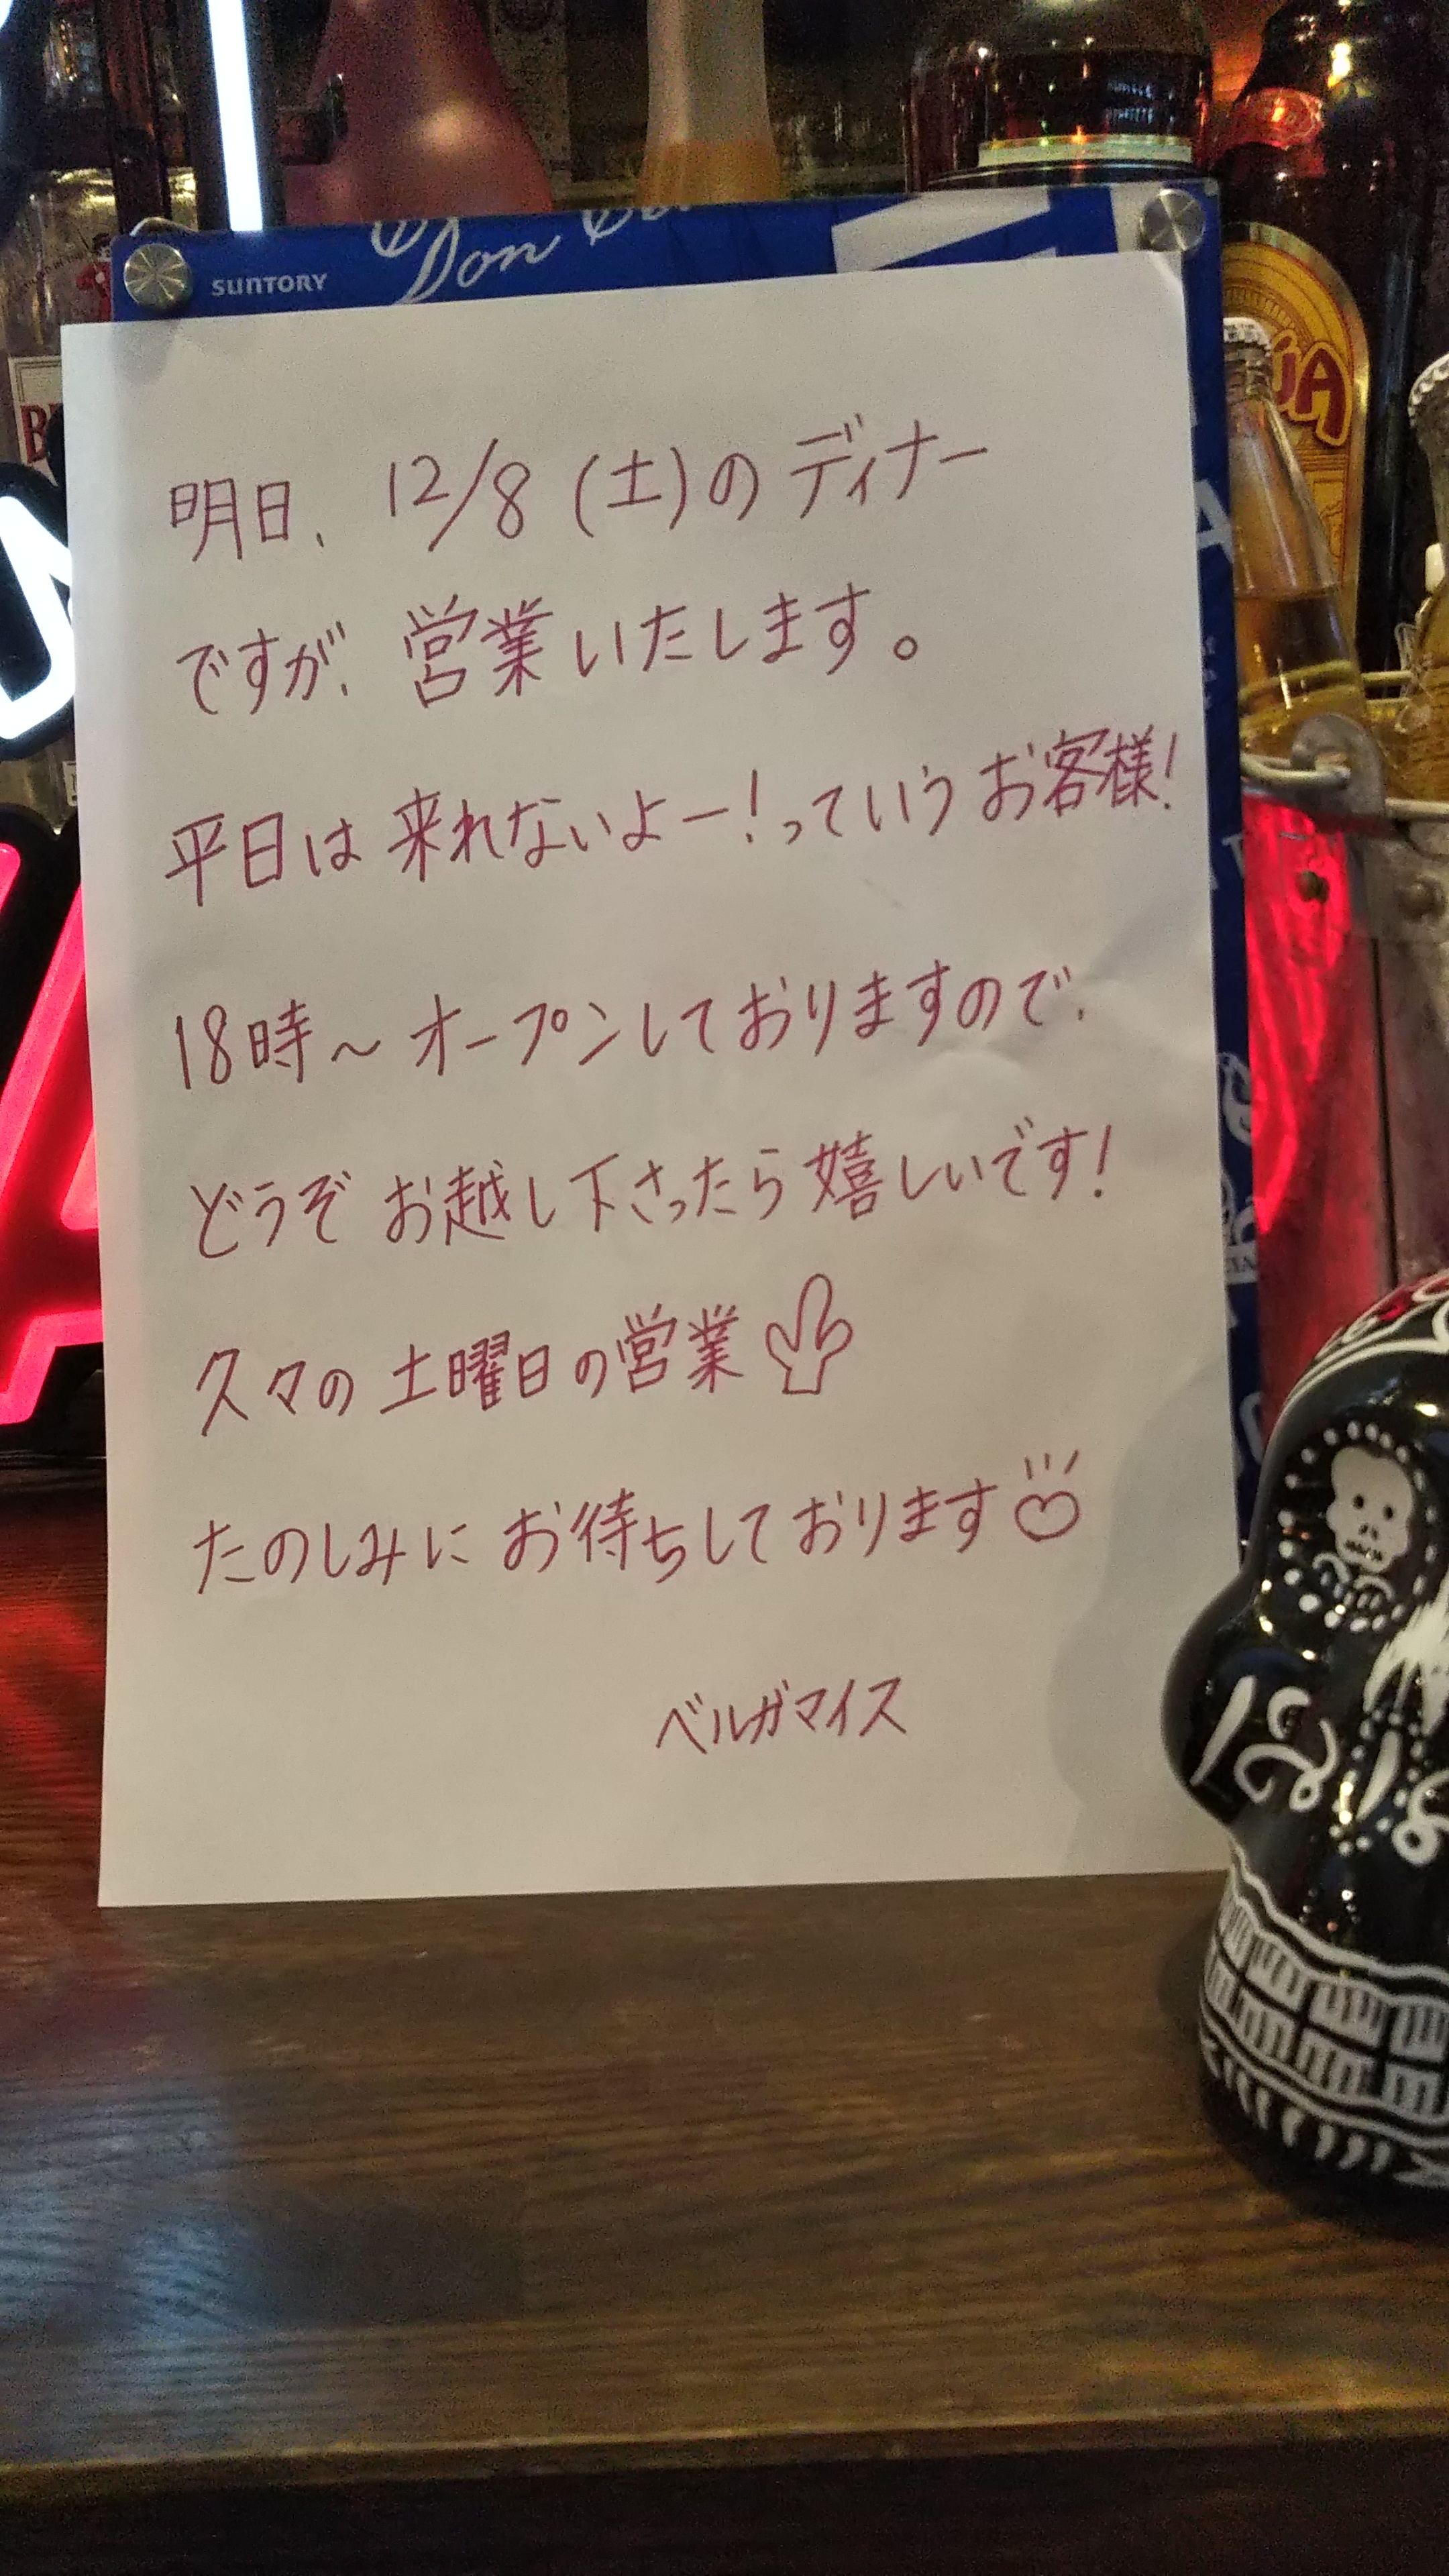 SUNTORY
Don
明日、12/8(土)のディナー
ですが、営業いたします。
平日は来れないよー!っていうお客様!
18時〜オープンしておりますので、
どうぞお越し下さったら嬉しいです!
久々の土曜日の営業
たのしみにお待ちしております
ベルガマイス